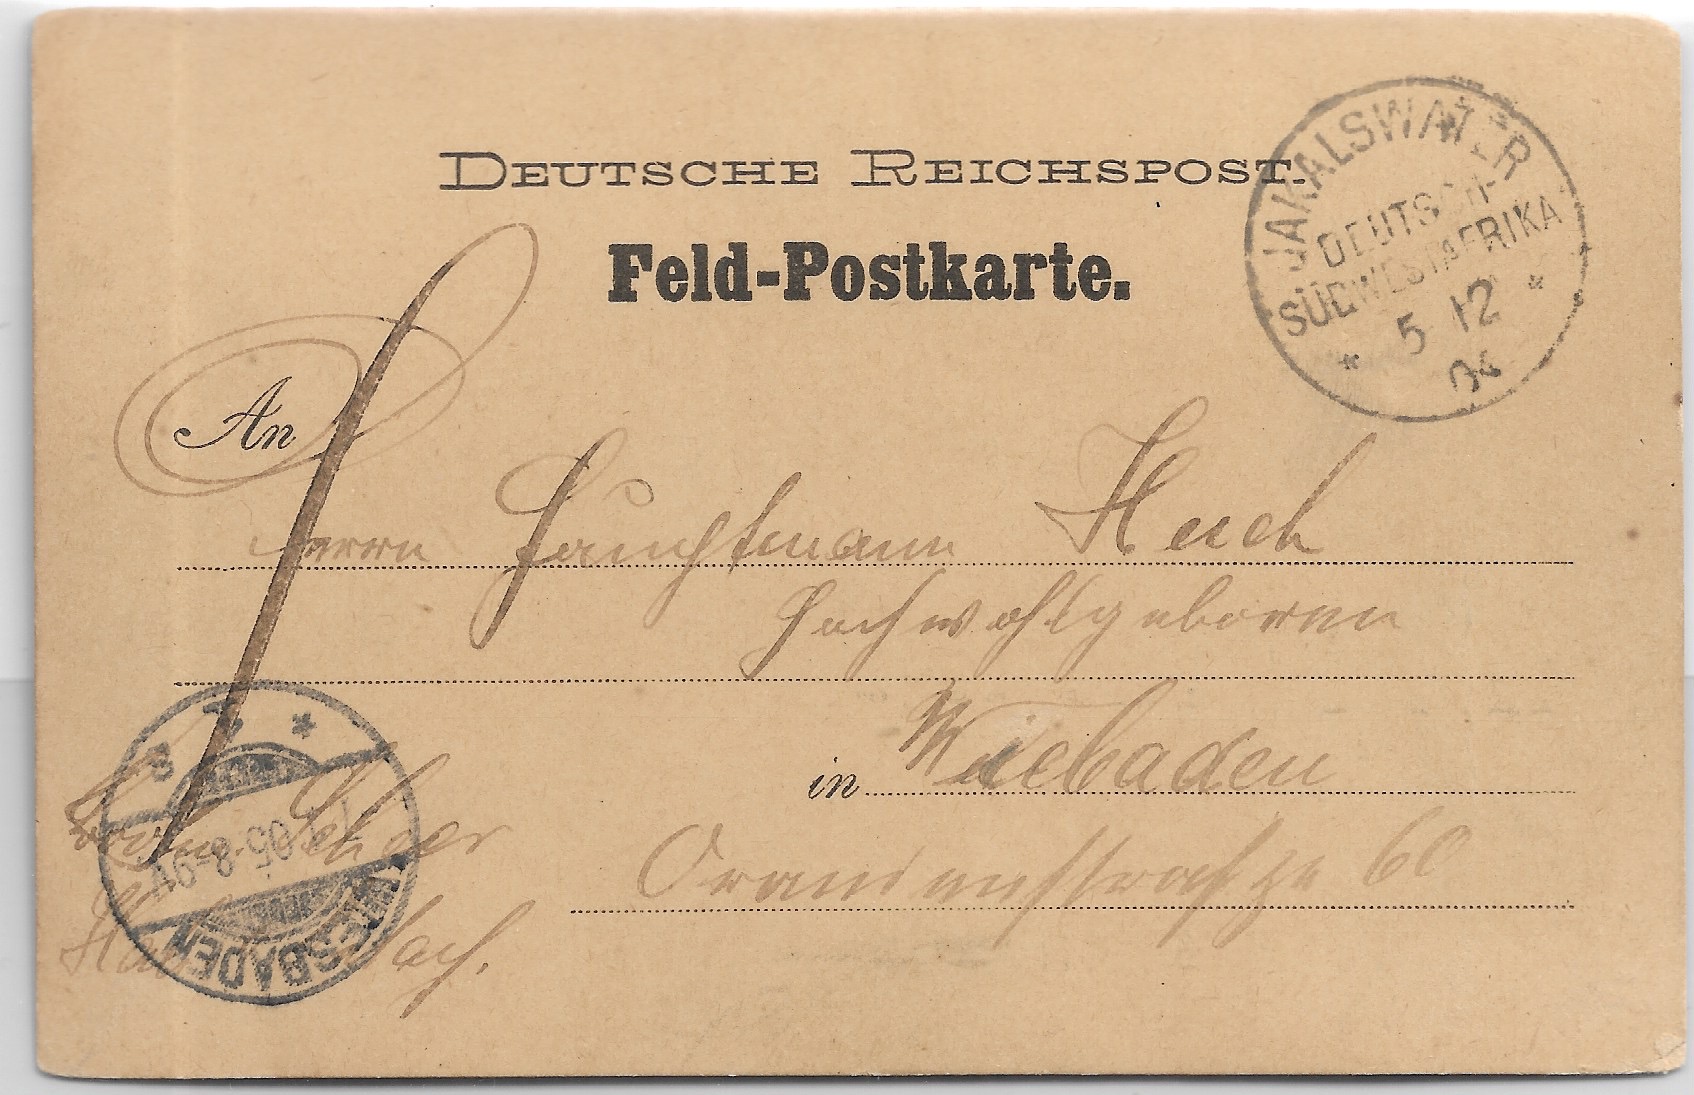 DEUTSCHE REICHSPOST.
Feld-Postkarte.
JAKALSWATER
DEUTSCH-
SÜDWESTAFRIKA
* 5 12 *
04
An
Herrn Hauptmann Huch
Hochwohlgeboren
in Wiebaden
Oranienstrasse 60
WIESBADEN
05.8-9V